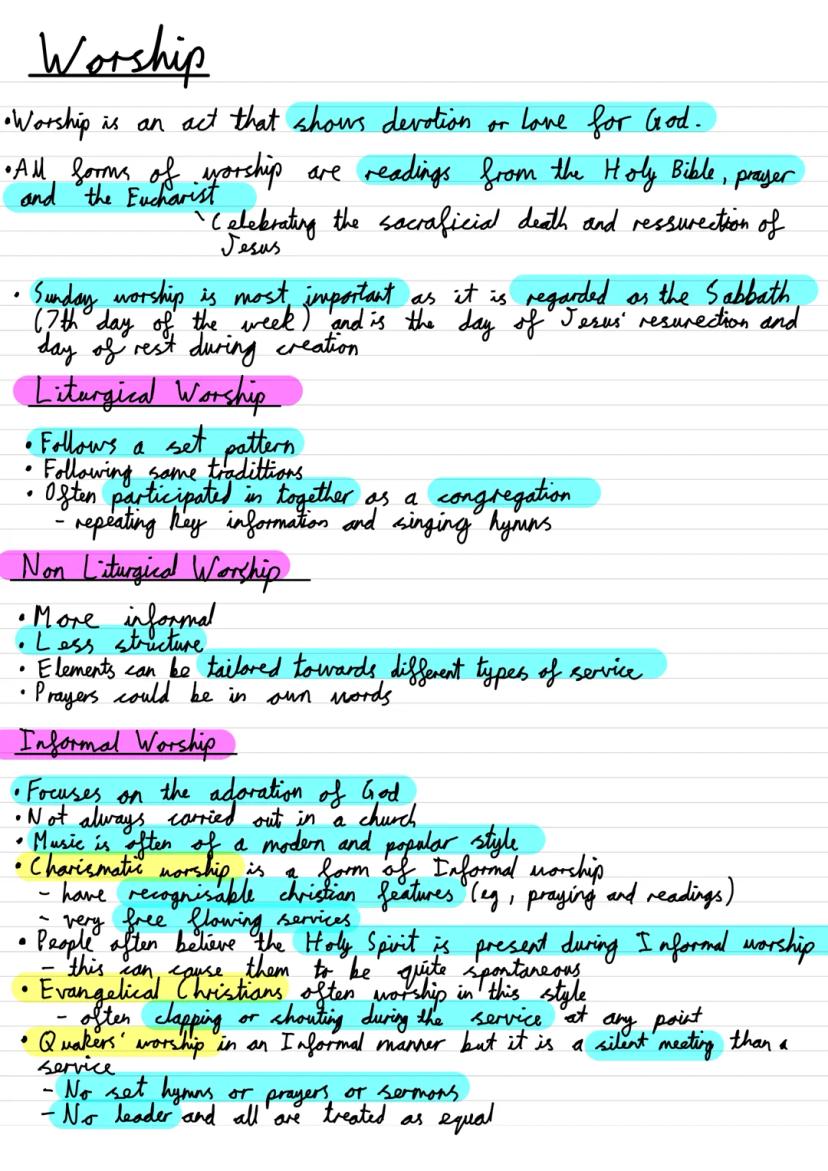 Worship
•Worship is an act that shows devotion or love for God.
•All forms of worship are readings from the Holy Bible, prayer
and the Eucharist
Celebrating the sacraficial death and ressurection of
Jesus
• Sunday worship is most important as it is regarded as the Sabbath
(7th day of the week) and is the day of Jesus' resurection and
day of rest during creation
Liturgical Worship
• Follows a set pattern
• Following same tradittions
• Often participated in together as a congregation
- repeating key information and singing hymns
Non Liturgical Worship
• More informal
• Less structure
• Elements can be tailored towards different types of service
• Prayers could be in own words
Informal Worship
• Focuses on the adoration of God
• Not always carried out in a church
• Music is often of a modern and popular style
• Charismatic worship is a form of Informal worship
- have recognisable christian features (eg, praying and readings)
- very free flowing services
• People often believe the Holy Spirit is present during Informal worship
- this can cause them to be quite spontaneous
• Evangelical Christians often worship in this style
- often clapping or shouting during the service at any point
• Quakers' worship in an Informal manner but it is a silent meeting than a
service
- No set hymns or prayers or sermons
- No leader and all are treated as equal